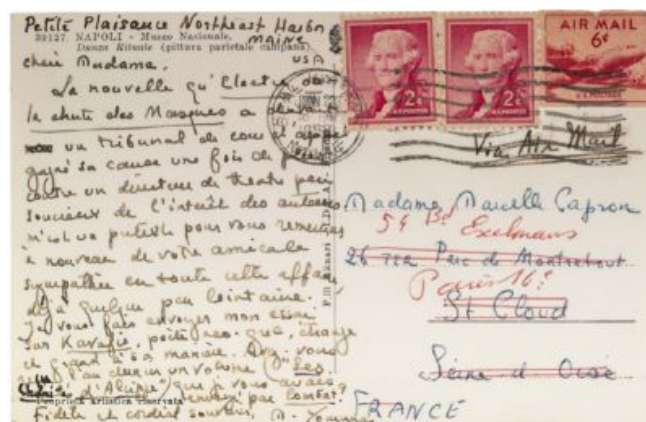 Petite Plaisance Northeast Harbor
MAINE
USA
39127. NAPOLI - Museo Nazionale.
Danza Rituale (pittura parietale campana)
chère Madame,
La nouvelle qu'Electre ou
la chute des Masques a
un tribunal de cour d'appel
gagné sa cause une fois de plus
contre un directeur de théâtre peu
soucieux de l'intérêt des auteurs
m'est un prétexte pour vous remercier
à nouveau de votre amicale
sympathie en toute cette affaire
déjà quelque peu lointaine.
Je vous fais envoyer mon essai
sur Kavafis, poète néo-grec, étrange
et grand à sa manière. Avez-vous
un volume
d'Alcippe" que je vous avais
envoyé par
Proprietà artistica riservata
Fidèle et cordial souvenir,
2¢
2¢
AIR MAIL
6¢
U.S. POSTAGE
Via Air Mail
Madame Marcelle Capron
54 Bd Exelmans
26 ter Parc de Montretout
Paris 16e
St Cloud
Seine et Oise
FRANCE